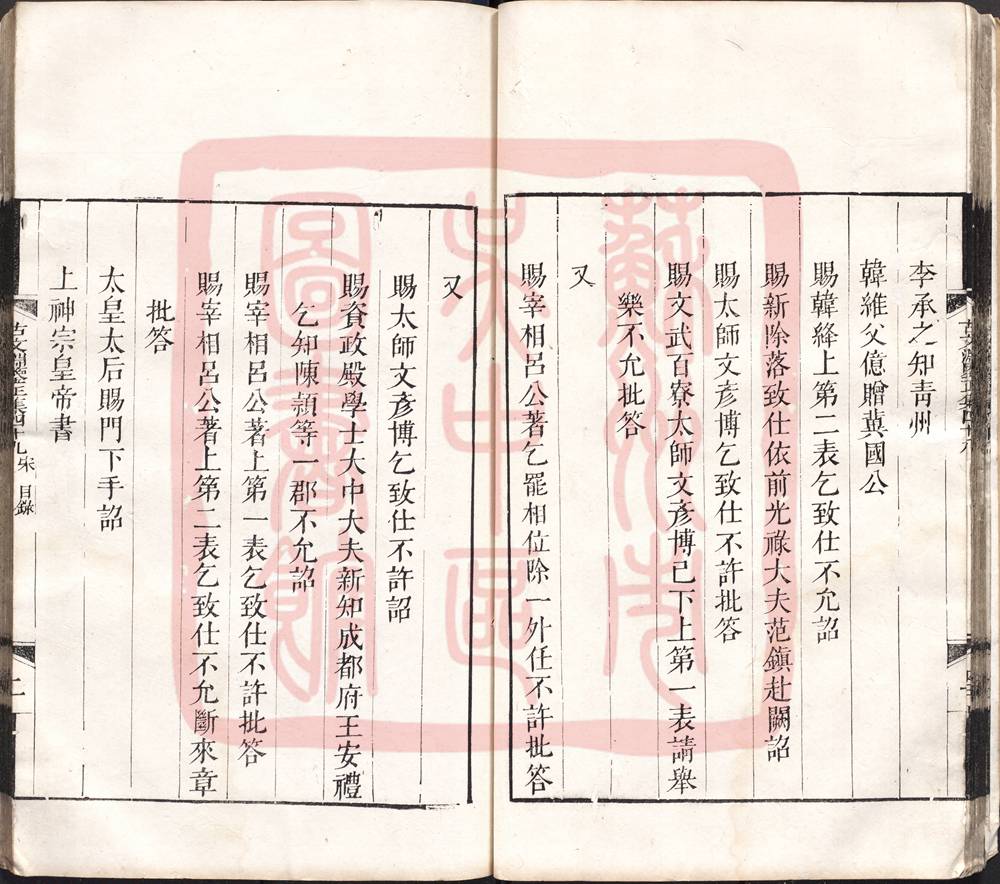 李承之知青州
韓維父億贈冀國公
賜韓絳上第二表乞致仕不允詔
賜新除落致仕依前光祿大夫范鎮赴闕詔
賜太師文彥博乞致仕不許批答
賜文武百寮太師文彥博已下上第一表請舉
樂不允批答
又
賜宰相呂公著乞罷相位除一外任不許批答
又
賜太師文彥博乞致仕不許詔
賜資政殿學士大中大夫新知成都府王安禮
乞知陳潁等一郡不允詔
賜宰相呂公著上第一表乞致仕不許批答
賜宰相呂公著上第二表乞致仕不允斷來章
批答
太皇太后賜門下手詔
上神宗皇帝書
古文淵鑒正集四十九 宋 目錄
二
蘇州市
吳中區
圖書館